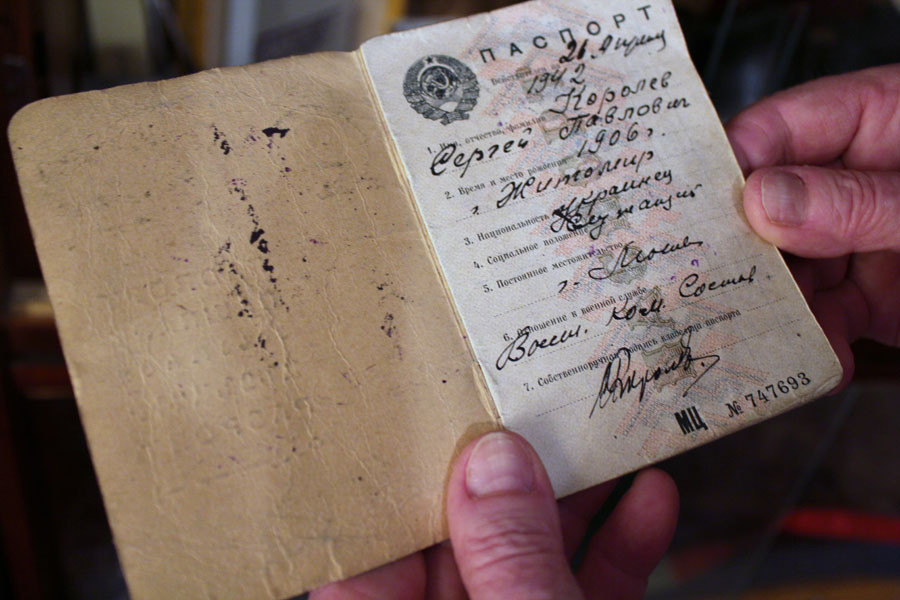 ПАСПОРТ
Действ 26 Апреля
1942
Королев
1. Имя, отчество, фамилия
Сергей Павлович
2. Время и место рождения 1906 г.
г. Житомир
3. Национальность украинец
4. Социальное положение Служащий
5. Постоянное местожительство
г. Москва
6. Отношение к военной службе
Воен. Ком. Состав
7. Собственноручная подпись владельца паспорта
МЦ № 747693